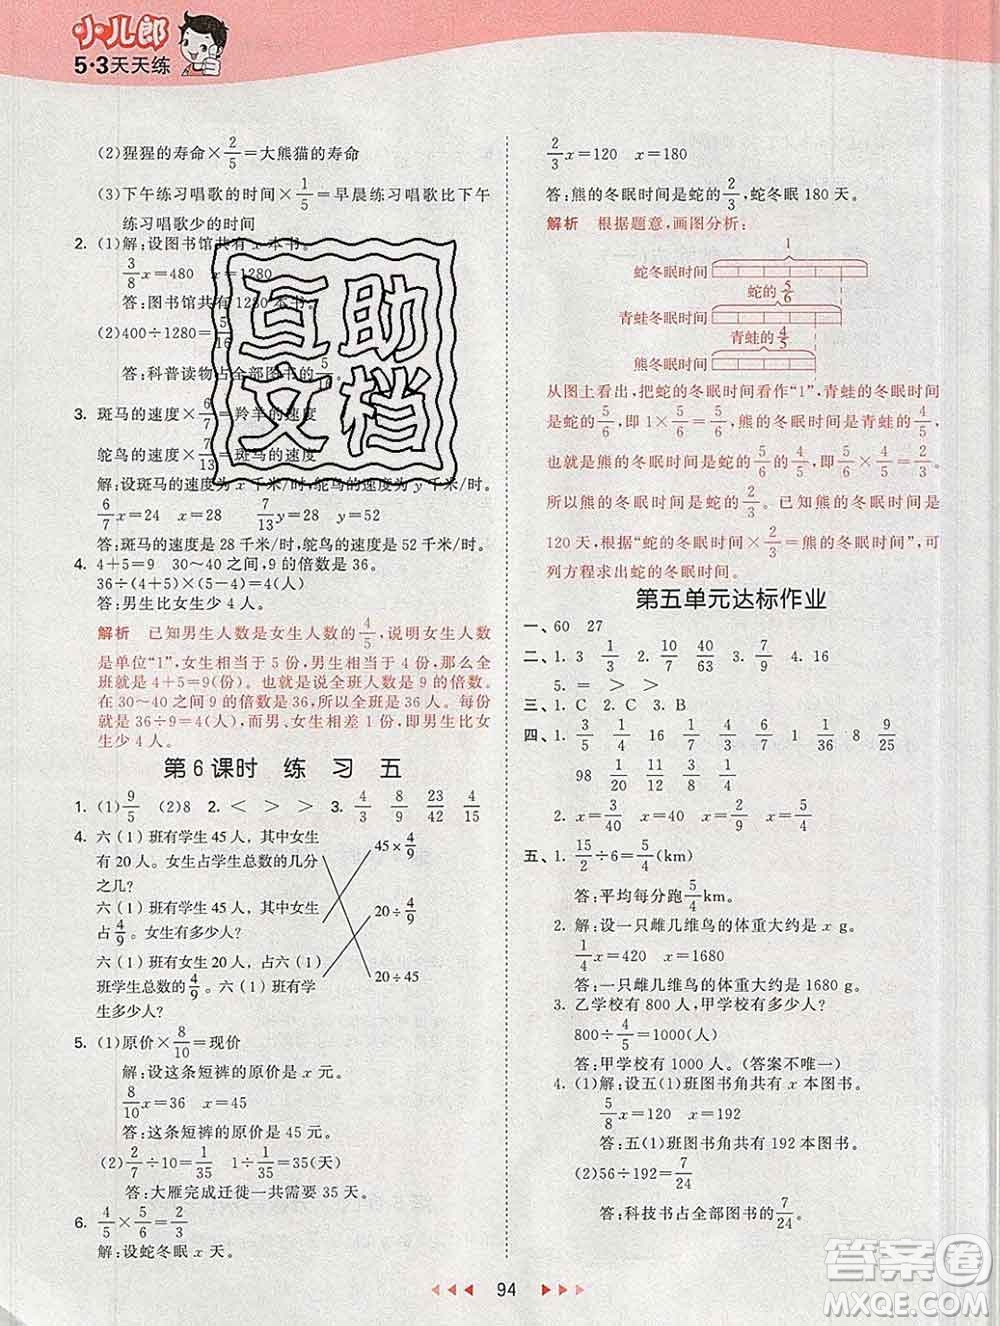 小儿郎
5·3天天练
(2)猩猩的寿命×2/5=大熊猫的寿命
(3)下午练习唱歌的时间×1/5=早晨练习唱歌比下午
练习唱歌少的时间
2. (1)解:设图书馆共有 x 本书。
3/8x=480 x=1280
答:图书馆共有 1280 本书。
(2)400÷1280=5/16
答:科普读物占全部图书的5/16。
3. 斑马的速度×6/7=羚羊的速度
鸵鸟的速度×7/13=斑马的速度
解:设斑马的速度为 x 千米/时,鸵鸟的速度为 y 千米/时。
6/7x=24 x=28 7/13y=28 y=52
答:斑马的速度是 28 千米/时,鸵鸟的速度是 52 千米/时。
4. 4+5=9 30~40 之间,9 的倍数是 36。
36÷(4+5)×(5-4)=4(人)
答:男生比女生少 4 人。
解析 已知男生人数是女生人数的4/5,说明女生人数
是单位“1”,女生相当于 5 份,男生相当于 4 份,那么全
班就是 4+5=9(份)。也就是说全班人数是 9 的倍数。
在 30~40 之间 9 的倍数是 36,所以全班有 36 人。每份
就是 36÷9=4(人),而男、女生相差 1 份,即男生比女
生少 4 人。
第 6 课时 练 习 五
1. (1)9/5 (2)8 2. < > > 3. 4/3 8/9 23/42 4/15
4. 六(1)班有学生 45 人,其中女生
有 20 人。女生占学生总数的几分
之几?
45×4/9
六(1)班有学生 45 人,其中女生
占4/9。女生有多少人?
20÷4/9
六(1)班有女生 20 人,占六(1)
班学生总数的4/9。六(1)班有学
生多少人?
20÷45
5. (1)原价×8/10=现价
解:设这条短裤的原价是 x 元。
8/10x=36 x=45
答:这条短裤的原价是 45 元。
(2)2/7÷10=1/35 1÷1/35=35(天)
答:大雁完成迁徙一共需要 35 天。
6. 4/5×5/6=2/3
解:设蛇冬眠 x 天。
2/3x=120 x=180
答:熊的冬眠时间是蛇的2/3,蛇冬眠 180 天。
解析 根据题意,画图分析:
1
蛇冬眠时间
蛇的5/6
青蛙冬眠时间
青蛙的4/5
熊冬眠时间
从图上看出,把蛇的冬眠时间看作“1”,青蛙的冬眠时间
是蛇的5/6,即 1×5/6=5/6,熊的冬眠时间是青蛙的4/5,
也就是熊的冬眠时间是蛇的5/6的4/5,即5/6×4/5=2/3。
所以熊的冬眠时间是蛇的2/3。已知熊的冬眠时间是
120 天,根据“蛇的冬眠时间×2/3=熊的冬眠时间”,可
列方程求出蛇的冬眠时间。
第五单元达标作业
一、60 27
二、1. 3 1/3 2. 7/10 40/63 3. 7/9 4. 16
5. = > >
三、1. C 2. C 3. B
四、1. 3/5 1/4 16 1/7 4/7 6/7 1/12 8 9/25
98 1/20 4/5 7/4
2. x=4/9 x=40 x=2/9 x=40
五、1. 15/2÷6=5/4(km)
答:平均每分跑5/4km。
2. 解:设一只雌几维鸟的体重大约是 x g。
1/4x=420 x=1680
答:一只雌几维鸟的体重大约是 1680 g。
3. 乙学校有 800 人,甲学校有多少人?
800÷4/5=1000(人)
答:甲学校有 1000 人。(答案不唯一)
4. (1)解:设五(1)班图书角共有 x 本图书。
5/8x=120 x=192
答:五(1)班图书角共有 192 本图书。
(2)56÷192=7/24
答:科技书占全部图书的7/24。
94
互助
文档
答案圈
MXQE.COM